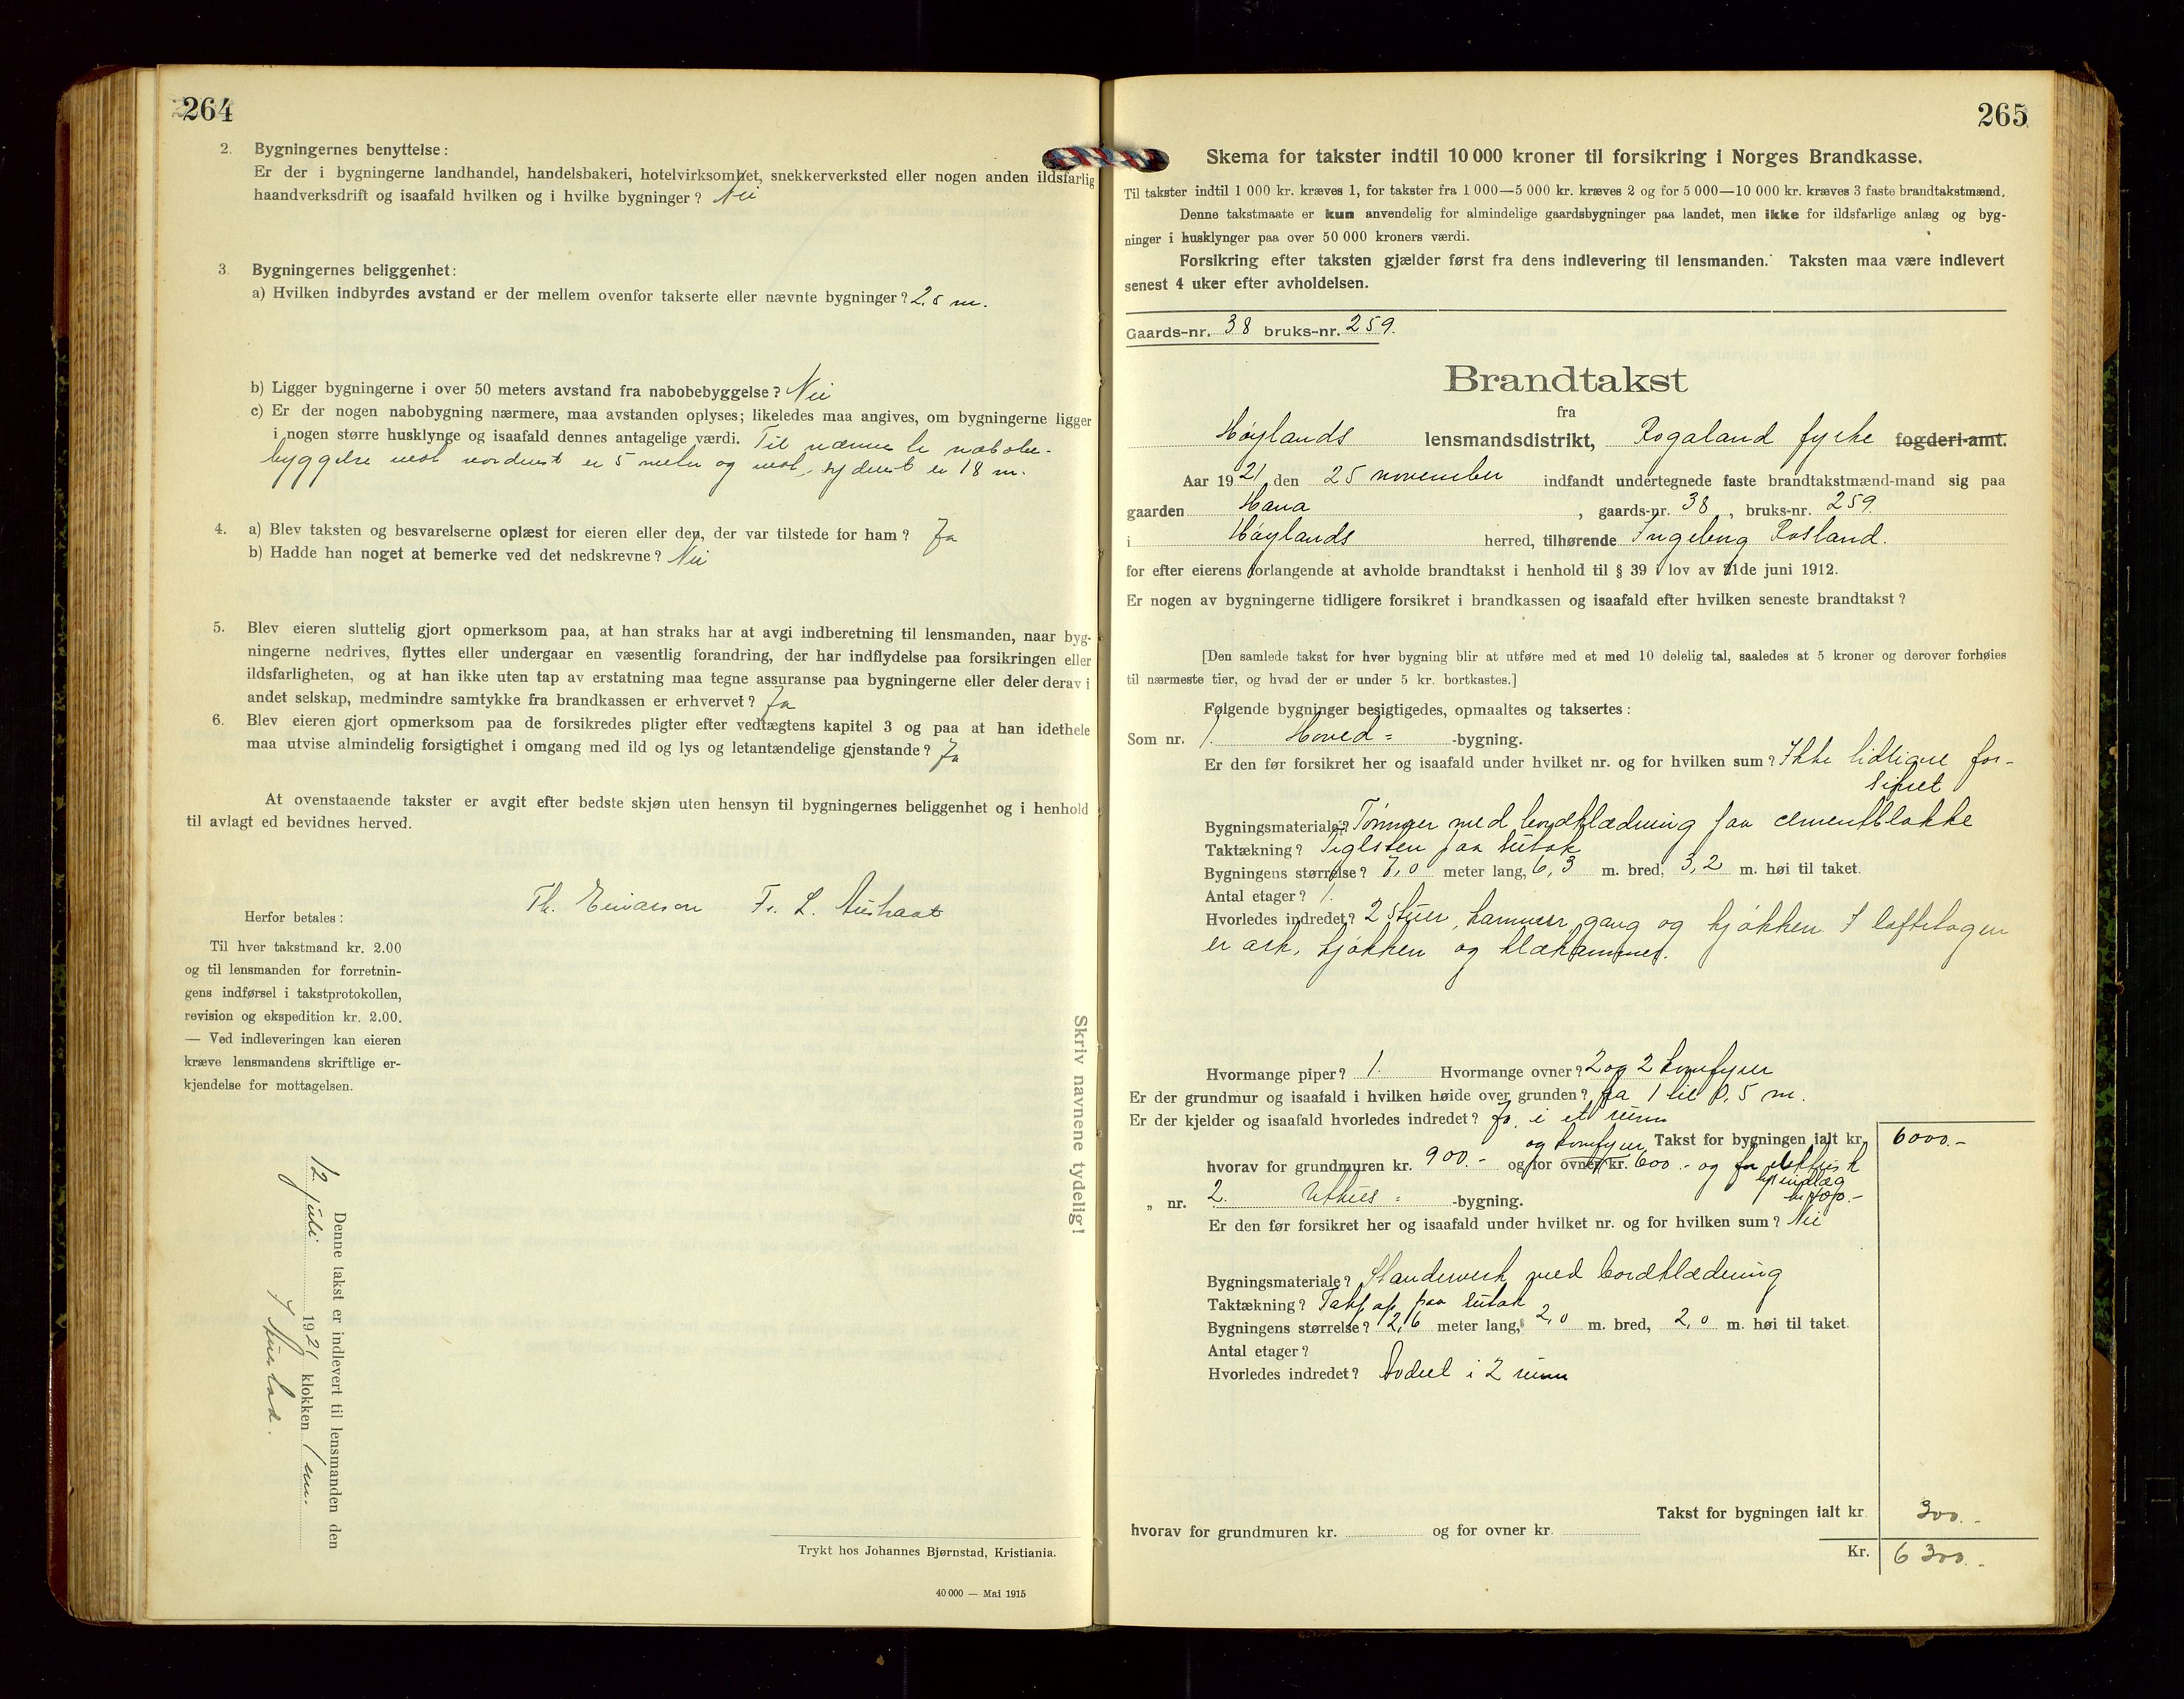 264
2. Bygningernes benyttelse:
Er der i bygningerne landhandel, handelsbakeri, hotelvirksomhet, snekkerverksted eller nogen anden ildsfarlig
haandverksdrift og isaafald hvilken og i hvilke bygninger? Nei
3. Bygningernes beliggenhet:
a) Hvilken indbyrdes avstand er der mellem ovenfor takserte eller nævnte bygninger? 2,5 m.
b) Ligger bygningerne i over 50 meters avstand fra nabobebyggelse? Nei
c) Er der nogen nabobygning nærmere, maa avstanden oplyses; likeledes maa angives, om bygningerne ligger
i nogen større husklynge og isaafald dennes antagelige værdi. Til nærmeste nabobe-
byggelse mot nordvest er 5 meter og mot sydvest er 18 m.
4. a) Blev taksten og besvarelserne oplæst for eieren eller den, der var tilstede for ham? Ja
b) Hadde han noget at bemerke ved det nedskrevne? Nei
5. Blev eieren sluttelig gjort opmerksom paa, at han straks har at avgi indberetning til lensmanden, naar byg-
ningerne nedrives, flyttes eller undergaar en væsentlig forandring, der har indflydelse paa forsikringen eller
ildsfarligheten, og at han ikke uten tap av erstatning maa tegne assuranse paa bygningerne eller deler derav i
andet selskap, medmindre samtykke fra brandkassen er erhvervet? Ja
6. Blev eieren gjort opmerksom paa de forsikredes pligter efter vedtægtens kapitel 3 og paa at han idethele
maa utvise almindelig forsigtighet i omgang med ild og lys og letantændelige gjenstande? Ja
At ovenstaaende takster er avgit efter bedste skjøn uten hensyn til bygningernes beliggenhet og i henhold
til avlagt ed bevidnes herved.
Th. Fr. L.
Herfor betales:
Til hver takstmand kr. 2.00
og til lensmanden for forretnin-
gens indførsel i takstprotokollen,
revision og ekspedition kr. 2.00.
— Ved indleveringen kan eieren
kræve lensmandens skriftlige er-
kjendelse for mottagelsen.
Skriv navnene tydelig!
Denne takst er indlevert til lensmanden den
12 juli 1921 klokken 1 em.
Trykt hos Johannes Bjørnstad, Kristiania.
40 000 — Mai 1915
265
Skema for takster indtil 10 000 kroner til forsikring i Norges Brandkasse.
Til takster indtil 1 000 kr. kræves 1, for takster fra 1 000—5 000 kr. kræves 2 og for 5 000—10 000 kr. kræves 3 faste brandtakstmænd.
Denne takstmaate er kun anvendelig for almindelige gaardsbygninger paa landet, men ikke for ildsfarlige anlæg og byg-
ninger i husklynger paa over 50 000 kroners værdi.
Forsikring efter taksten gjælder først fra dens indlevering til lensmanden. Taksten maa være indlevert
senest 4 uker efter avholdelsen.
Gaards-nr. 38 bruks-nr. 259.
Brandtakst
fra
Høylands lensmandsdistrikt, Rogaland fylke fogderi-amt.
Aar 1921 den 25 november indfandt undertegnede faste brandtakstmænd-mand sig paa
gaarden Hana, gaards-nr. 38, bruks-nr. 259
i Høylands herred, tilhørende Ingeborg Rosland.
for efter eierens forlangende at avholde brandtakst i henhold til § 39 i lov av 21de juni 1912.
Er nogen av bygningerne tidligere forsikret i brandkassen og isaafald efter hvilken seneste brandtakst?
[Den samlede takst for hver bygning blir at utføre med et med 10 delelig tal, saaledes at 5 kroner og derover forhøies
til nærmeste tier, og hvad der er under 5 kr. bortkastes.]
Følgende bygninger besigtigedes, opmaaltes og taksertes:
Som nr. 1. Hoved= -bygning.
Er den før forsikret her og isaafald under hvilket nr. og for hvilken sum? Ikke tidligere for-
sikret
Bygningsmateriale? Tømmer med bordklædning paa cementblokke
Taktækning? Teglsten paa sutak
Bygningens størrelse? 7,0 meter lang, 6,3 m. bred, 3,2 m. høi til taket.
Antal etager? 1.
Hvorledes indredet? 2 stuer, kammer, gang og kjøkken. I loftetagen
er ark, kjøkken og klækammer.
Hvormange piper? 1. Hvormange ovner? 2 og 2 komfyrer
Er der grundmur og isaafald i hvilken høide over grunden? fra 1 til 0,5 m.
Er der kjelder og isaafald hvorledes indredet? Ja, i et rum
og komfyrer Takst for bygningen ialt kr. 6000.-
hvorav for grundmuren kr. 900.- og for ovner kr. 600.- og for elektrisk
lysindlæg
„ nr. 2. Uthus= -bygning.
Er den før forsikret her og isaafald under hvilket nr. og for hvilken sum? Nei
Bygningsmateriale? Standerverk med bordklædning
Taktækning? Takpap paa sutak
Bygningens størrelse? 2,6 meter lang, 2,0 m. bred, 2,0 m. høi til taket.
Antal etager?
Hvorledes indredet? Avdeelt i 2 rum
Takst for bygningen ialt kr 300.-
hvorav for grundmuren kr. og for ovner kr.
Kr. 6300.-